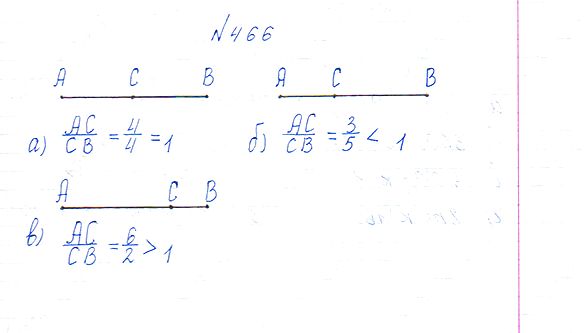 №466
A C B
A C B
а) AC/CB = 4/4 = 1
б) AC/CB = 3/5 < 1
A C B
в) AC/CB = 6/2 > 1